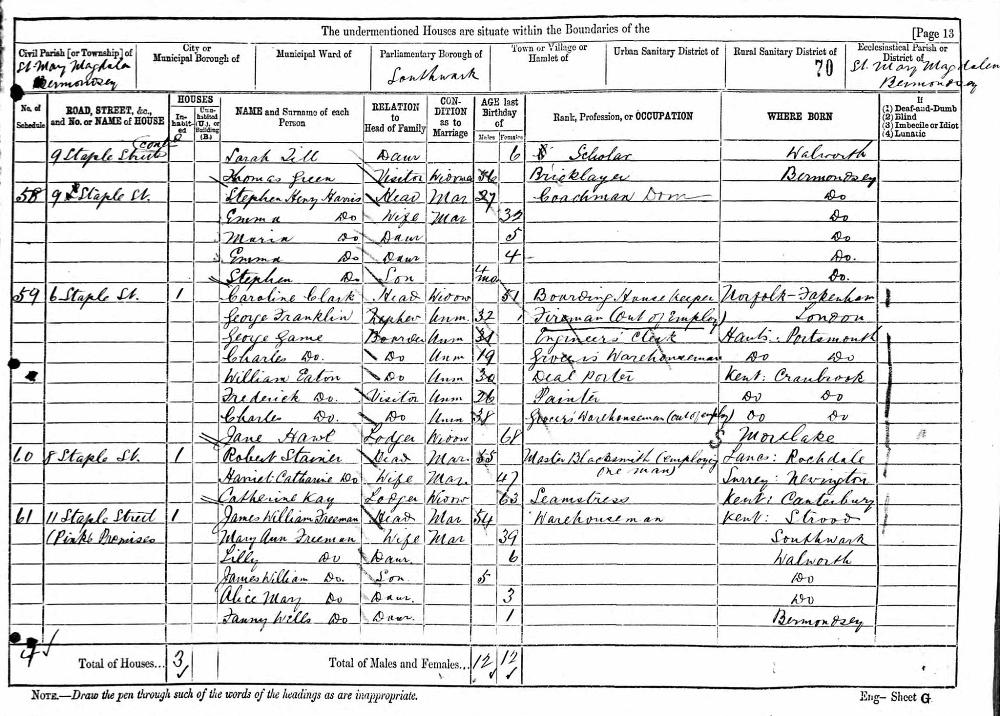 The undermentioned Houses are situate within the Boundaries of the
[Page 13
Civil Parish [or Township] of St. Mary Magdalen Bermondsey
City or Municipal Borough of
Municipal Ward of
Parliamentary Borough of Southwark
Town or Village or Hamlet of
Urban Sanitary District of
Rural Sanitary District of
70
Ecclesiastical Parish or District of St. Mary Magdalen Bermondsey
No. of Schedule
ROAD, STREET, &c., and No. or NAME of HOUSE
HOUSES
In-habit-ed
Un-inhabited (U.), or Building (B.)
NAME and Surname of each Person
RELATION to Head of Family
CON-DITION as to Marriage
AGE last Birthday of
Males
Females
Rank, Profession, or OCCUPATION
WHERE BORN
If
(1) Deaf-and-Dumb
(2) Blind
(3) Imbecile or Idiot
(4) Lunatic
9 Staple Street contd Sarah Till Daur 6 Scholar Walworth
Thomas Green Visitor 56 Bricklayer Bermondsey
58 9 Staple St. Stephen Henry Harris Head Mar 27 Coachman Dom Do
Emma Do Wife Mar 32 Do
Maria Do Daur 5 Do
Emma Do Daur 4 Do.
Stephen Do Son 4 mo Do.
59 6 Staple St. 1 Caroline Clark Head Widow 51 Boarding House Keeper Norfolk-Fakenham
George Franklin Nephew Unm 32 Fireman (Out of Employ) London
George Game Boarder Unm 21 Engineer's Clerk Hants: Portsmouth
Charles Do. Do Unm 19 Grocer's Warehouseman Do Do
William Eaton Do Unm 30 Deal Porter Kent: Cranbrook
Frederick Do. Visitor Unm 26 Painter Do Do
Charles Do. Do Unm 38 Grocer's Warehouseman (out of employ) Do Do
Jane Lodger Widow 68 S Mortlake
60 8 Staple St. 1 Robert Head Mar. 55 Master Blacksmith (employing one man) Lancs: Rochdale
Harriet Catharine Do Wife Mar. 47 Surrey: Newington
Catherine Kay Lodger Widow 63 Seamstress Kent: Canterbury
61 11 Staple Street 1 James William Freeman Head Mar 54 Warehouseman Kent: Strood
(Pinks Premises Mary Ann Freeman Wife Mar 39 Southwark
Lilly Do Daur. 6 Walworth
James William Do. Son. 5 Do
Alice Mary Do Daur. 3 Do
Fanny Wells Do Daur. 1 Bermondsey
4 Total of Houses... 3 Total of Males and Females... 12 12
NOTE.—Draw the pen through such of the words of the headings as are inappropriate.
Eng— Sheet G